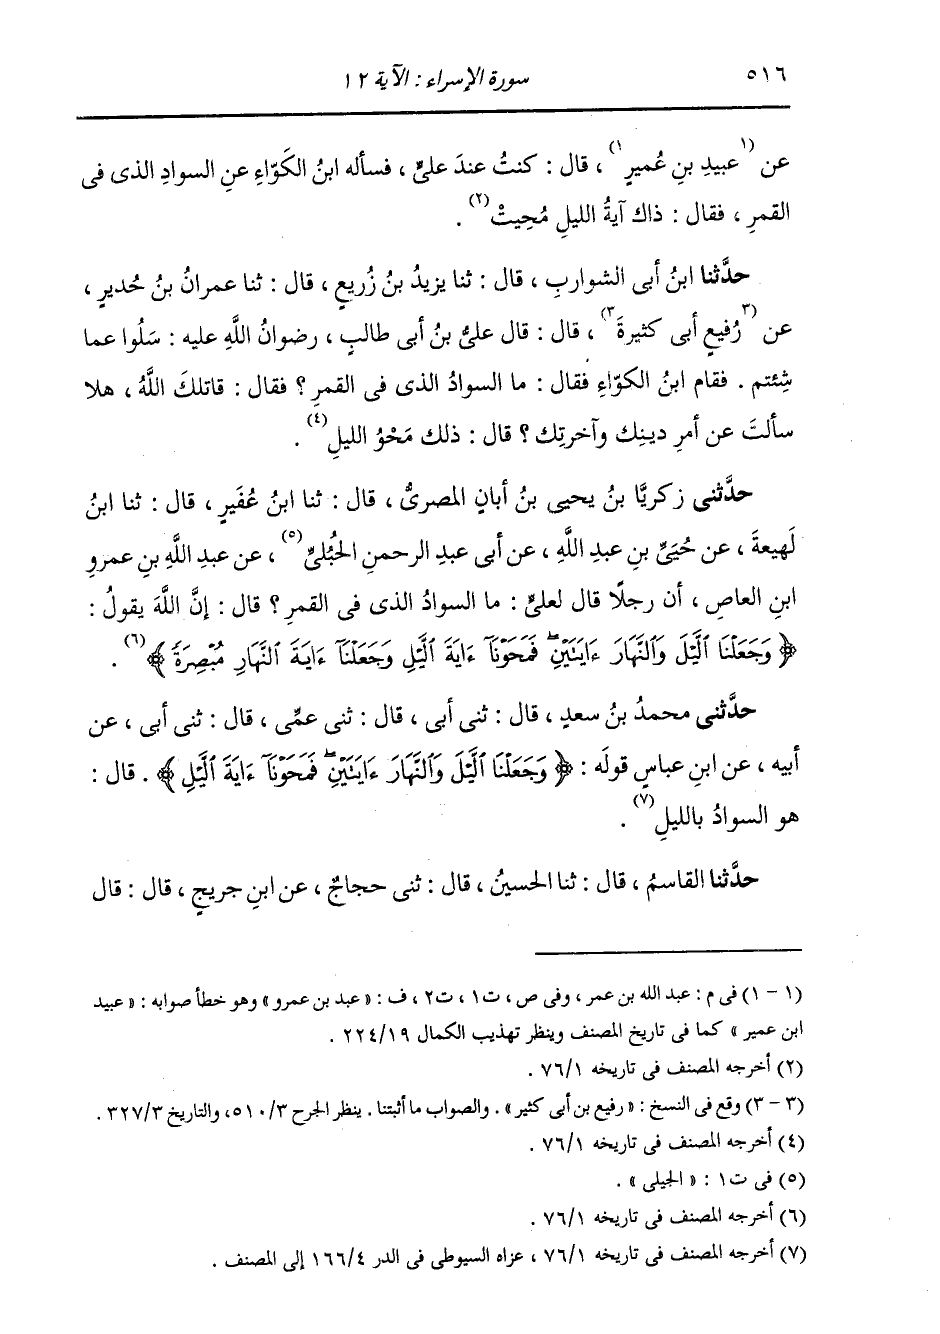 ٥١٦ سورة الإسراء : الآية ١٢
عن (١عبيدِ بنِ عُميرٍ١) ، قال : كنتُ عندَ علىٍّ ، فسأله ابنُ الكَوّاءِ عنِ السوادِ الذى فى
القمرِ ، فقال : ذاك آيةُ الليلِ مُحِيتْ(٢) .
حدَّثنا ابنُ أبى الشواربِ ، قال : ثنا يزيدُ بنُ زُريعٍ ، قال : ثنا عمرانُ بنُ حُديرٍ ،
عن (٣رُفيعٍ أبى كثيرةَ٣) ، قال : قال علىُّ بنُ أبى طالبٍ ، رضوانُ اللَّهِ عليه : سَلُوا عما
شِئتم . فقام ابنُ الكوّاءِ فقال : ما السوادُ الذى فى القمرِ ؟ فقال : قاتلكَ اللَّهُ ، هلا
سألتَ عن أمرِ دينِك وآخرتِك ؟ قال : ذلك مَحْوُ الليلِ(٤) .
حدَّثنى زكريَّا بنُ يحيى بنُ أبانٍ المصرىُّ ، قال : ثنا ابنُ عُفَيرٍ ، قال : ثنا ابنُ
لَهيعةَ ، عن حُيَىِّ بنِ عبدِ اللَّهِ ، عن أبى عبدِ الرحمنِ الحُبُلىِّ(٥) ، عن عبدِ اللَّهِ بنِ عمرِو
ابنِ العاصِ ، أن رجلًا قال لعلىٍّ : ما السوادُ الذى فى القمرِ ؟ قال : إنَّ اللَّهَ يقولُ :
﴿ وَجَعَلْنَا ٱلَّيْلَ وَٱلنَّهَارَ ءَايَتَيْنِۖ فَمَحَوْنَآ ءَايَةَ ٱلَّيْلِ وَجَعَلْنَآ ءَايَةَ ٱلنَّهَارِ مُبْصِرَةً ﴾(٦) .
حدَّثنى محمدُ بنُ سعدٍ ، قال : ثنى أبى ، قال : ثنى عمِّى ، قال : ثنى أبى ، عن
أبيه ، عن ابنِ عباسٍ قولَه : ﴿ وَجَعَلْنَا ٱلَّيْلَ وَٱلنَّهَارَ ءَايَتَيْنِۖ فَمَحَوْنَآ ءَايَةَ ٱلَّيْلِ ﴾ . قال :
هو السوادُ بالليلِ(٧) .
حدَّثنا القاسمُ ، قال : ثنا الحسينُ ، قال : ثنى حجاجٌ ، عن ابنِ جريجٍ ، قال : قال
(١ - ١) فى م : عبد الله بن عمر ، وفى ص ، ت١ ، ت٢ ، ف : « عبد بن عمرو » وهو خطأ صوابه : « عبيد
ابن عمير » كما فى تاريخ المصنف وينظر تهذيب الكمال ٢٢٤/١٩ .
(٢) أخرجه المصنف فى تاريخه ٧٦/١ .
(٣ - ٣) وقع فى النسخ : « رفيع بن أبى كثير » . والصواب ما أثبتنا . ينظر الجرح ٥١٠/٣، والتاريخ ٣٢٧/٣ .
(٤) أخرجه المصنف فى تاريخه ٧٦/١ .
(٥) فى ت١ : « الجيلى » .
(٦) أخرجه المصنف فى تاريخه ٧٦/١ .
(٧) أخرجه المصنف فى تاريخه ٧٦/١ ، عزاه السيوطى فى الدر ١٦٦/٤ إلى المصنف .